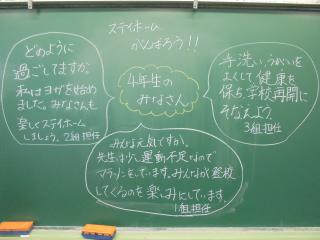 ステイホーム
がんばろう!!
どのように
過ごしてますか。
私はヨガを始め
ました。みなさんも
楽しくステイホーム
しましょう。2組担任
4年生の
みなさん
手洗い、うがいを
よくして、健康を
保ち、学校再開に
そなえよう。
3組担任
みんな元気ですか。
先生は少し運動不足なので
マラソンをしています。みんなが登校
してくるのを楽しみにしています。
1組担任